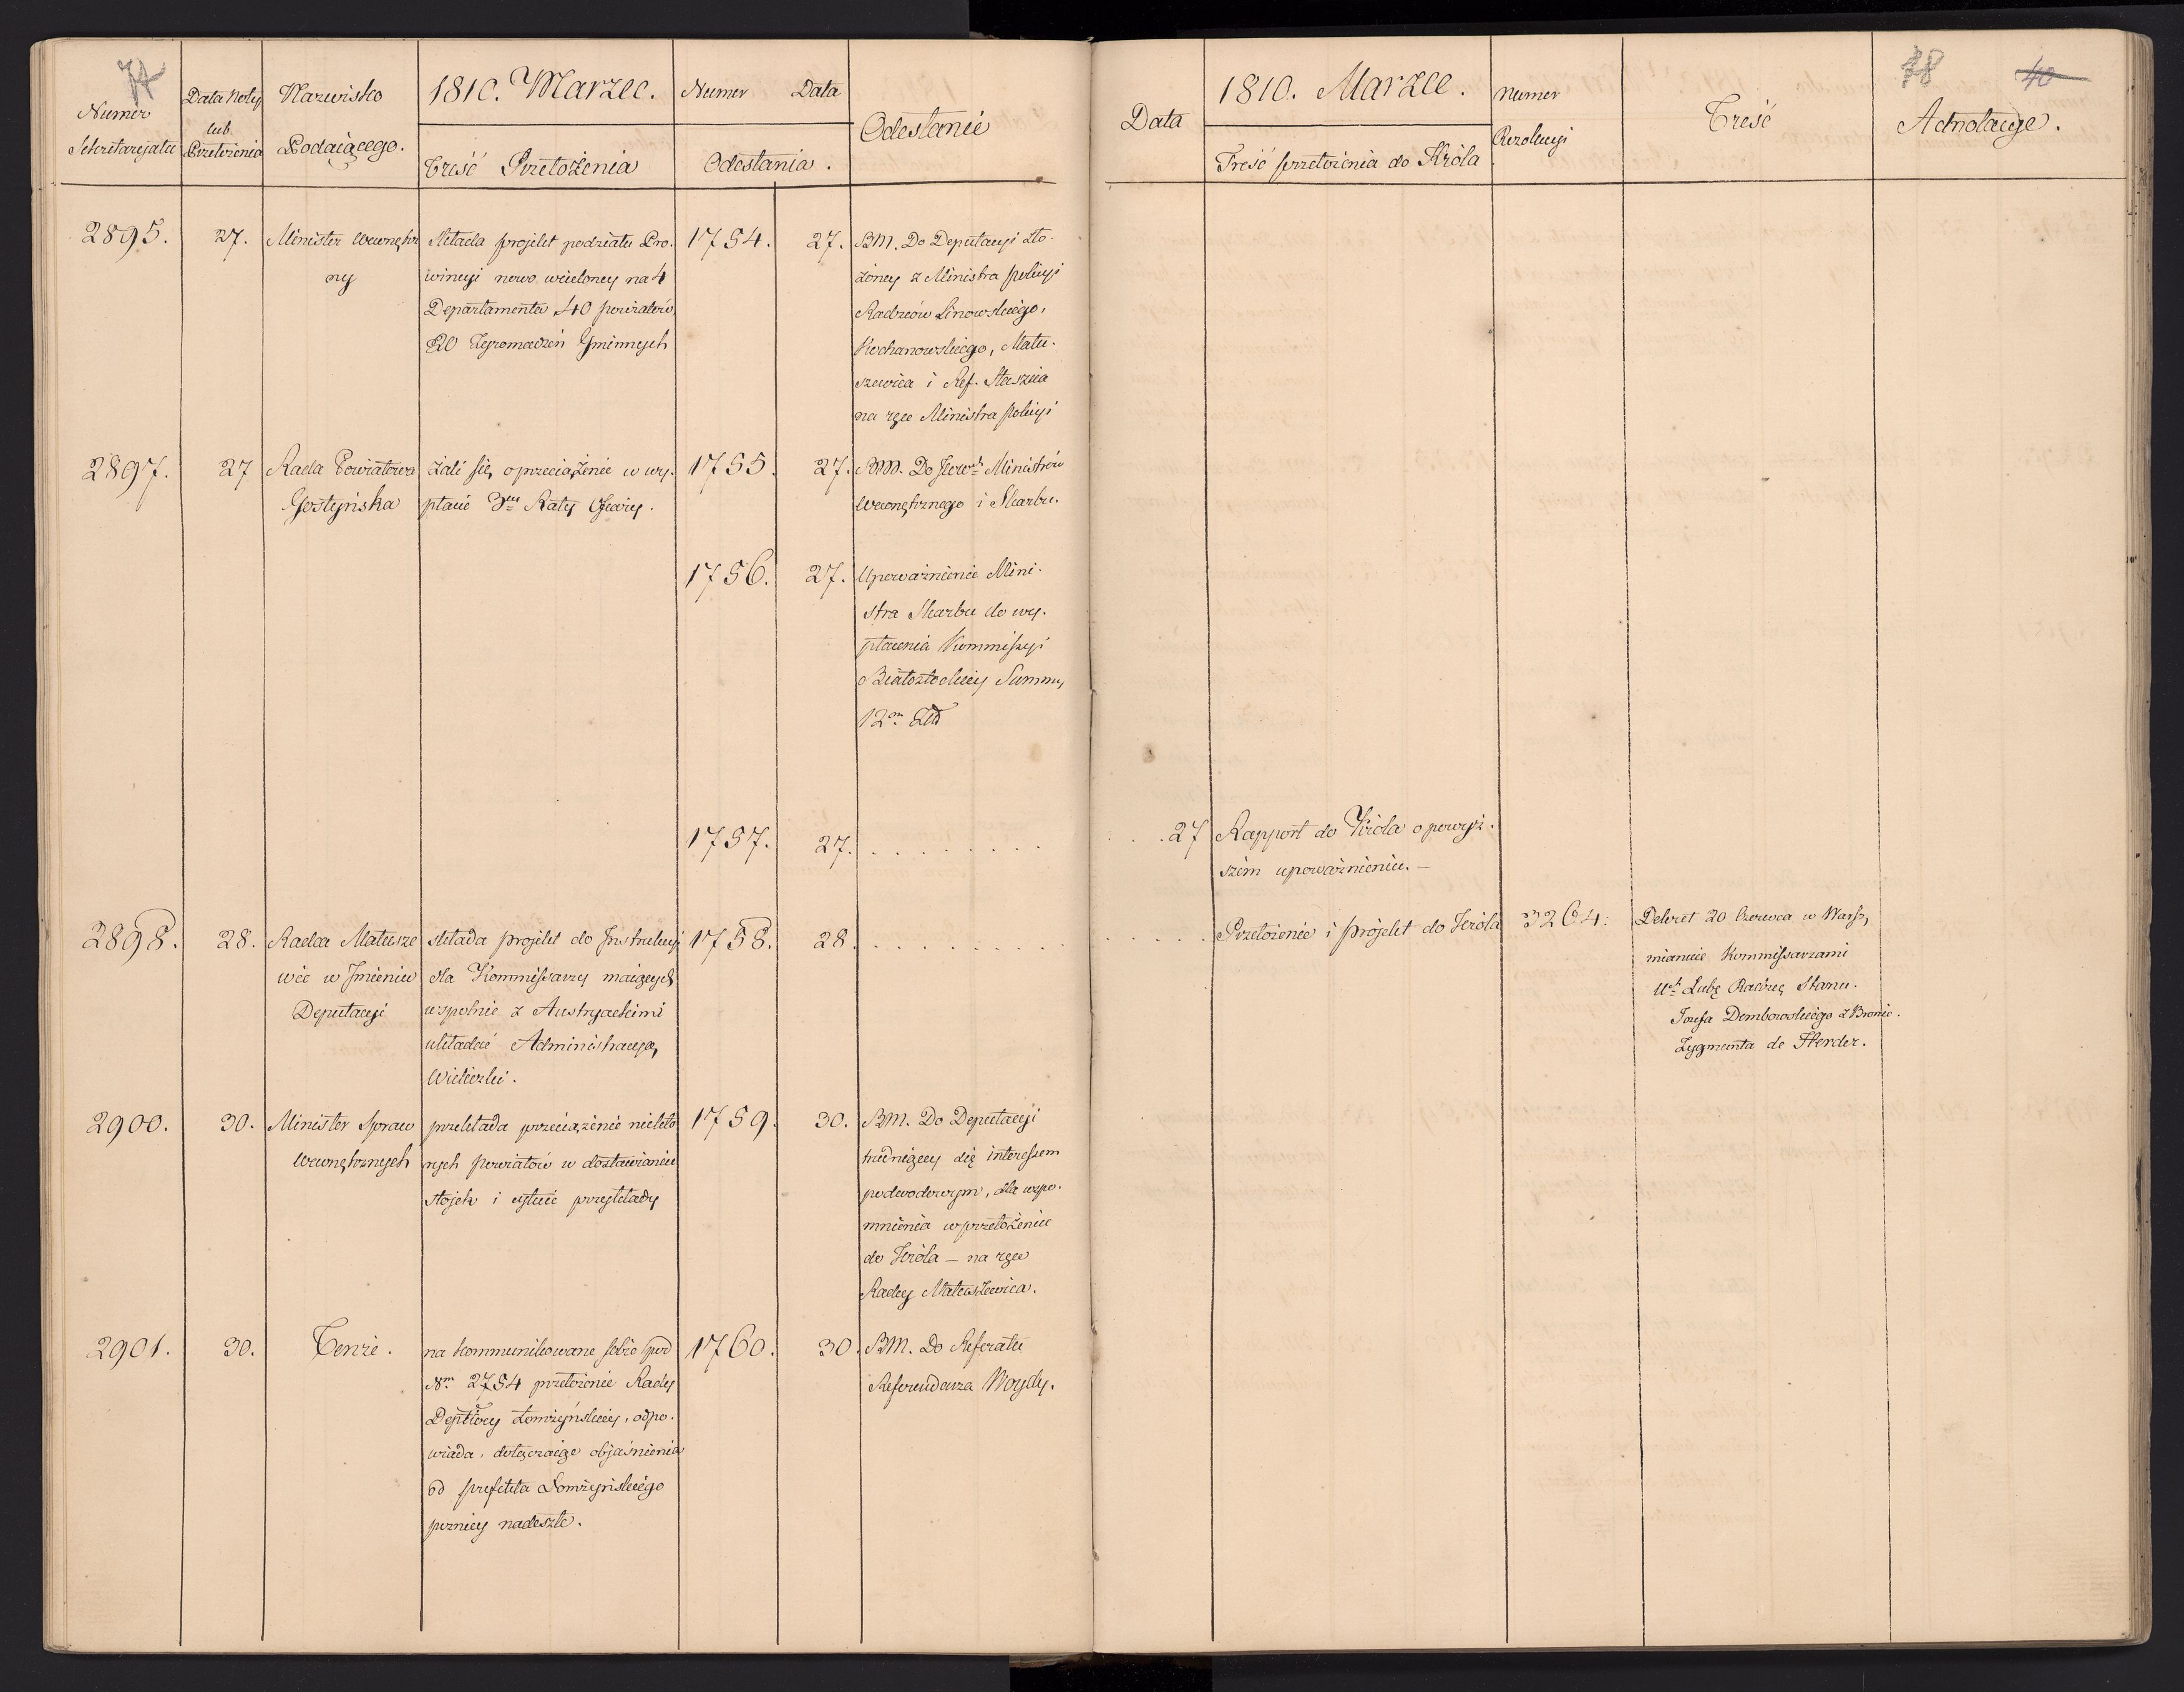 74
Numer Sekretaryatu
Data Noty lub Przełożenia
Nazwisko Podaiącego.
1810. Marzec.
Treść Przełożenia
Numer Data
Odesłania.
Odesłanie
2895. 27. Minister Wewnętrz
ny
składa projekt podziału Pro-
wincyi nowo wcieloney na 4
Departamenta 40 powiatów,
Zgromadzeń Gminnych
1754. 27. BM. Do Deputacyi zło-
żoney z Ministra policyi
Radzców Linowskiego,
Kochanowskiego, Matu-
szewica i Ref. Staszica
na ręce Ministra policyi
2897. 27 Rada Powiatowa
Gostyńska
żali się, o przeciążenie w wy-
płacie 3ciey Raty Ofiary.
1755. 27. BM. Do Ministrów
Wewnętrznego i Skarbu.
1756. 27. Upoważnienie Mini-
stra Skarbu do wy-
płacenia Kommissyi
Białostockiey Summy
12m Złł
1757. 27. . . . . . . . . .
2898. 28. Radca Matusze
wic w Jmieniu
Deputacyi
składa projekt do Jnstrukcyi
dla Kommissarzy maiących
wspolnie z Austryackimi
układać Administracyą,
Wieliczki.
1758. 28. . . . . . . . . .
2900. 30. Minister Spraw
Wewnętrznych
przekłada przeciążenie niektó
rych powiatów w dostawianiu
stojek i przykłady
1759. 30. BM. Do Deputacyi
trudniącey się interessem
podwodowym, dla wspo-
mnienia w przełożeniu
do Króla – na ręce
Radcy Matuszewica.
2901. 30. Tenże.
na kommunikowane sobie pod
Nm 2754 przełożenie Rady
Deptłwey Łomżyńskiey, odpo-
wiada, dołączaiąc objaśnienia
od prefekta Łomżyńskiego
pozniey nadeszłe.
1760. 30. BM. Do Referatu
Referendarza Woydy.
78 40
Data
1810. Marzec.
Treść przełożenia do Króla
Numer
Rezolucyi
Treść
Adnotacye.
. . 27 Rapport do Króla o powyż-
szem upoważnieniu. –
. . . . . Przełożenie i projekt do Króla
3264.
Dekret 20 Czerwca w Warsz,
mianuie Kommissarzami
Lubę Radzcę Stanu.
Jozefa Dembowskiego z Bronic.
Zygmunta de Herder.